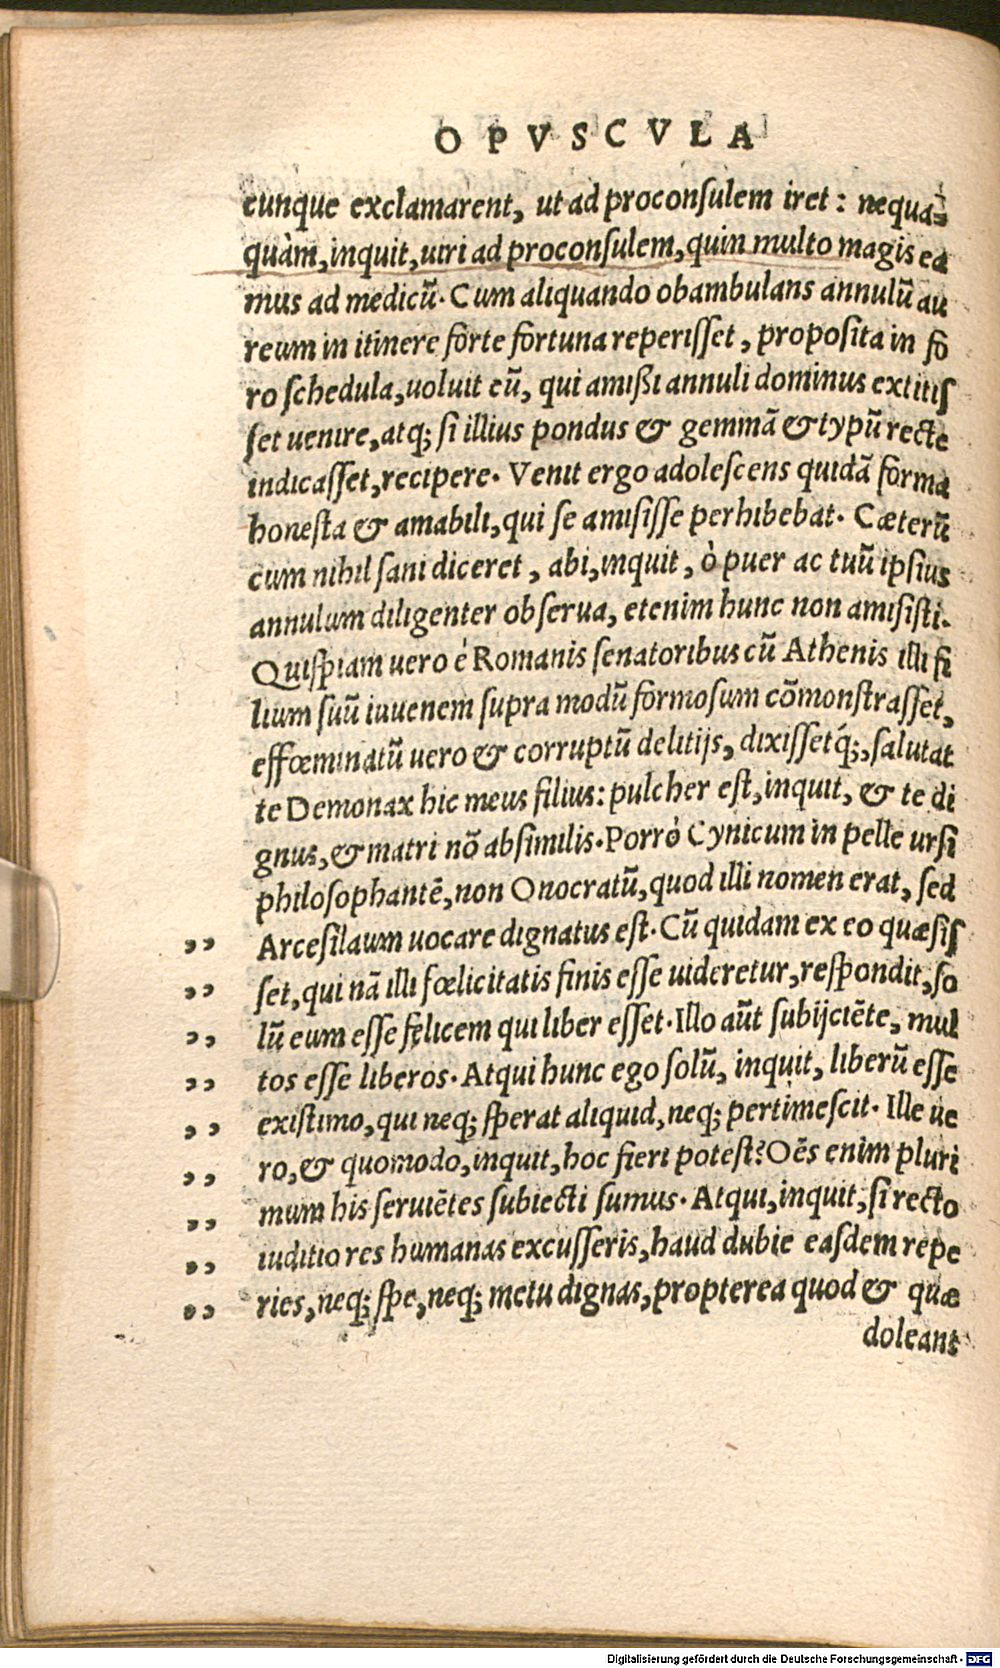 OPVSCVLA
cunque exclamarent, ut ad proconsulem iret: nequa⸗
quàm, inquit, uiri ad proconsulem, quin multo magis ea
mus ad medicū. Cum aliquando obambulans annulū au
reum in itinere forte fortuna reperisset, proposita in fo
ro schedula, uoluit eū, qui amißi annuli dominus extitis
set uenire, atq; si illius pondus & gemmā & typū recte
indicasset, recipere. Venit ergo adolescens quidā forma
honesta & amabili, qui se amisisse perhibebat. Cæterū
cum nihil sani diceret, abi, inquit, ò puer ac tuū ipsius
annulum diligenter obserua, etenim hunc non amisisti.
Quispiam uero è Romanis senatoribus cū Athenis illi fi
lium suū iuuenem supra modū formosum cōmonstrasset,
effœminatū uero & corruptū delitijs, dixissetq́;, salutat
te Demonax hic meus filius: pulcher est, inquit, & te di
gnus, & matri nō absimilis. Porrò Cynicum in pelle ursi
philosophantē, non Onocratū, quod illi nomen erat, sed
„ Arcesilaum uocare dignatus est. Cū quidam ex eo quæsis
„ set, qui nā illi fœlicitatis finis esse uideretur, respondit, so
„ lū eum esse fęlicem qui liber esset. Illo aūt subijciēte, mul
„ tos esse liberos. Atqui hunc ego solū, inquit, liberū esse
„ existimo, qui neq; sperat aliquid, neq; pertimescit. Ille ue
„ ro, & quomodo, inquit, hoc fieri potest? Oēs enim pluri
„ mum his seruiētes subiecti sumus. Atqui, inquit, si recto
„ iuditio res humanas excusseris, haud dubie easdem repe
„ ries, neq; spe, neq; metu dignas, propterea quod & quæ
doleant
Digitalisierung gefördert durch die Deutsche Forschungsgemeinschaft - DFG